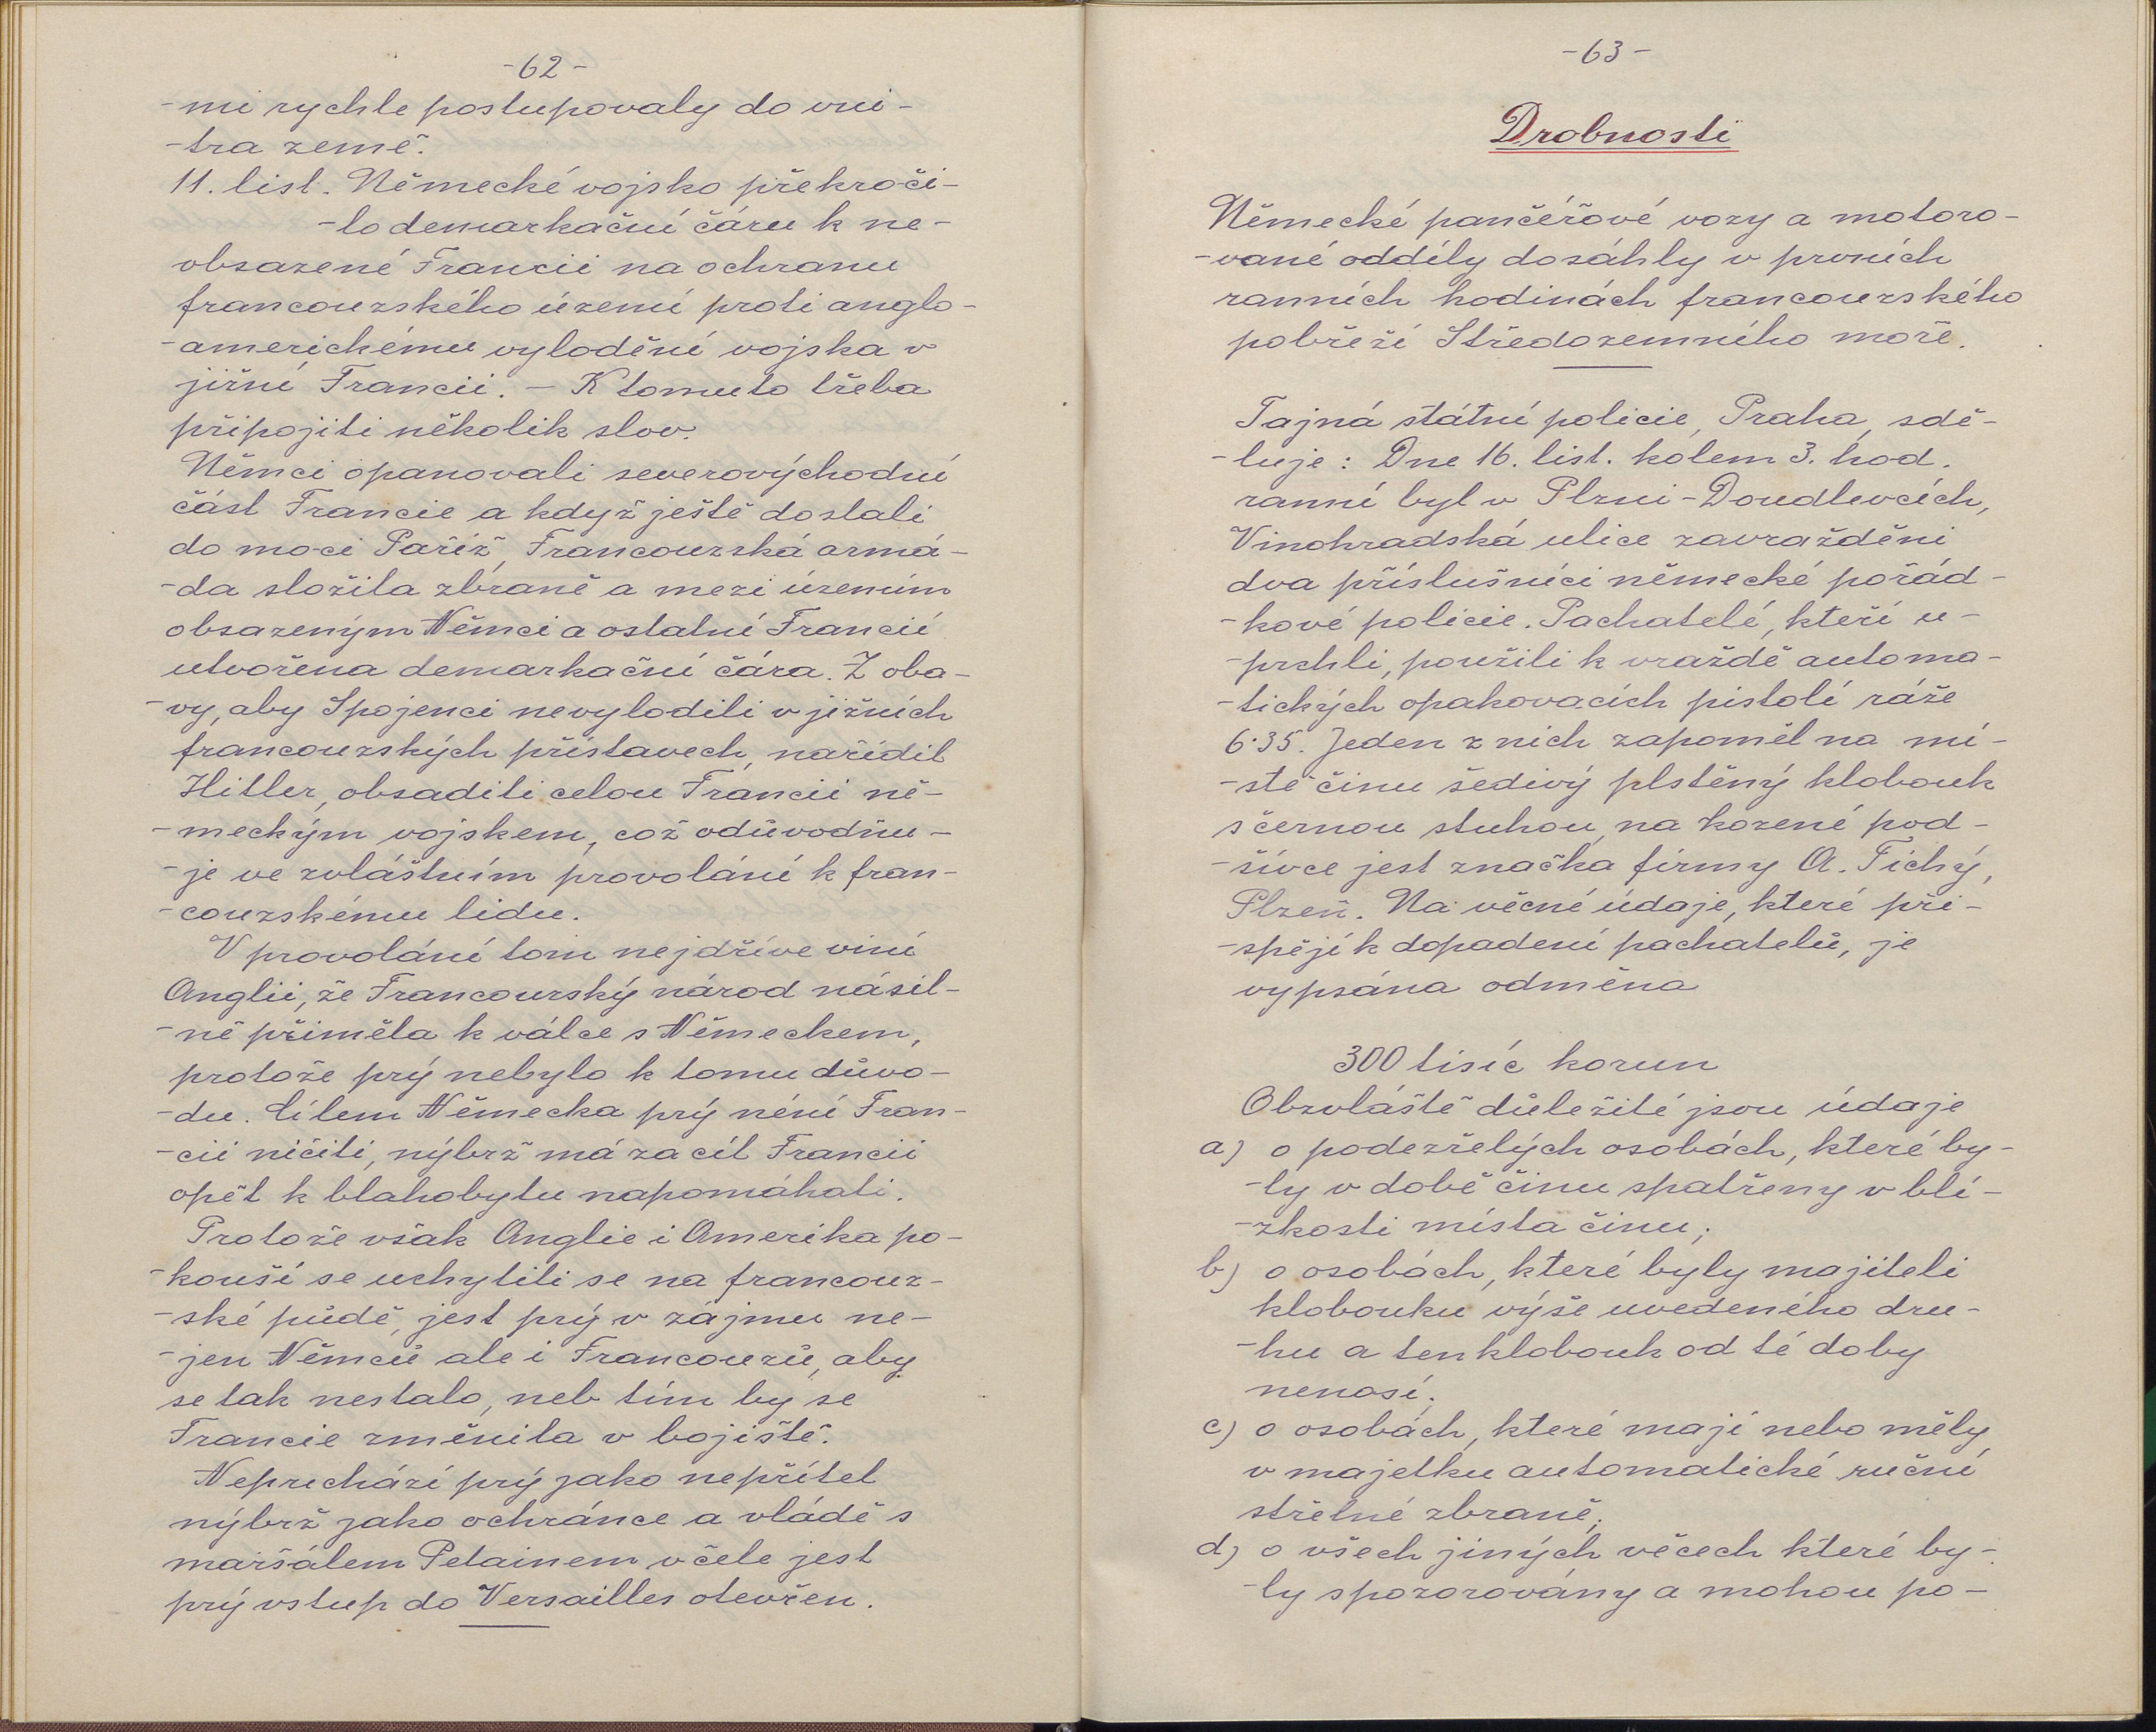 -62-
-mi rychle postupovaly do vni-
-tra země.
11. list. Německé vojsko překroči-
-lo demarkační čáru k ne-
obsazené Francii na ochranu
francouzského území proti anglo-
-americkému vylodění vojska v
jižní Francii. - K tomuto třeba
připojiti několik slov.
Němci opanovali severovýchodní
část Francie a když ještě dostali
do moci Paříž, Francouzská armá-
-da složila zbraně a mezi územím
obsazeným Němci a ostatní Francií
utvořena demarkační čára. Z oba-
-vy, aby Spojenci nevylodili v jižních
francouzských přístavech, nařídil
Hitler, obsaditi celou Francii ně-
-meckým vojskem, což odůvodňu-
-je ve zvláštním provolání k fran-
-couzskému lidu.
V provolání tom nejdříve viní
Anglii, že Francouzský národ násil-
-ně přiměla k válce s Německem,
protože prý nebylo k tomu důvo-
-du. Cílem Německa prý není Fran-
-cii ničiti, nýbrž má za cíl Francii
opět k blahobytu napomáhati.
Protože však Anglie i Amerika po-
-kouší se uchytiti se na francouz-
-ské půdě, jest prý v zájmu ne-
-jen Němců ale i Francouzů, aby
se tak nestalo, neb tím by se
Francie změnila v bojiště.
Neprichází prý jako nepřítel
nýbrž jako ochránce a vládě s
maršálem Petainem v čele jest
prý vstup do Versailles otevřen.
-63-
Drobnosti
Německé pančéřové vozy a motoro-
-vané oddíly dosáhly v prvních
ranních hodinách francouzského
pobřeží Středozemního moře.
Tajná státní policie, Praha, sdě-
-luje: Dne 16. list. kolem 3. hod.
ranní byl v Plzni-Doudlevcích,
Vinohradská ulice zavražděni
dva příslušníci německé pořád-
-kové policie. Pachatelé, kteří u-
-prchli, použili k vraždě automa-
-tických opakovacích pistolí ráže
6·35. Jeden z nich zapoměl na mí-
-stě činu šedivý plstěný klobouk
s černou stuhou, na kožené pod-
-šívce jest značka firmy A. Tichý,
Plzeň. Na věcné údaje, které při-
-spějí k dopadení pachatelů, je
vypsána odměna
300 tisíc korun
Obzvláště důležité jsou údaje
a) o podezřelých osobách, které by-
-ly v době činu spatřeny v blí-
-zkosti místa činu;
b) o osobách, které byly majiteli
klobouku výše uvedeného dru-
-hu a ten klobouk od té doby
nenosí;
c) o osobách, které mají nebo měly
v majetku automatické ruční
střelné zbraně;
d) o všech jiných věcech které by-
-ly spozorovány a mohou po-